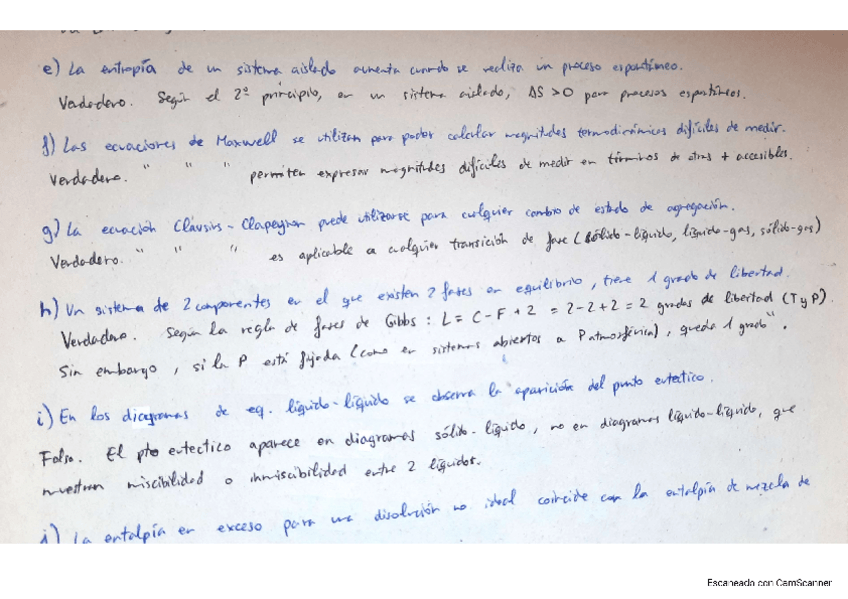 e) La entropía de un sistema aislado aumenta cuando se realiza un proceso espontáneo.
Verdadero. Según el 2º principio, en un sistema aislado, ΔS > 0 para procesos espontáneos.
f) Las ecuaciones de Maxwell se utilizan para poder calcular magnitudes termodinámicas difíciles de medir.
Verdadero. " " " permiten expresar magnitudes difíciles de medir en términos de otras + accesibles.
g) La ecuación Clausius-Clapeyron puede utilizarse para cualquier cambio de estado de agregación.
Verdadero. " " " es aplicable a cualquier transición de fase (sólido-líquido, líquido-gas, sólido-gas)
h) Un sistema de 2 componentes en el que existen 2 fases en equilibrio, tiene 1 grado de libertad.
Verdadero. Según la regla de fases de Gibbs: L = C - F + 2 = 2 - 2 + 2 = 2 grados de libertad (T y P).
Sin embargo, si la P está fijada (como en sistemas abiertos a P atmosférica), queda 1 grado".
i) En los diagramas de eq. líquido-líquido se observa la aparición del punto eutectico.
Falso. El pto eutectico aparece en diagramas sólido-líquido, no en diagramas líquido-líquido, que
muestran miscibilidad o inmiscibilidad entre 2 líquidos.
j) La entalpía en exceso para una disolución no ideal coincide con la entalpía de mezcla de
Escaneado con CamScanner